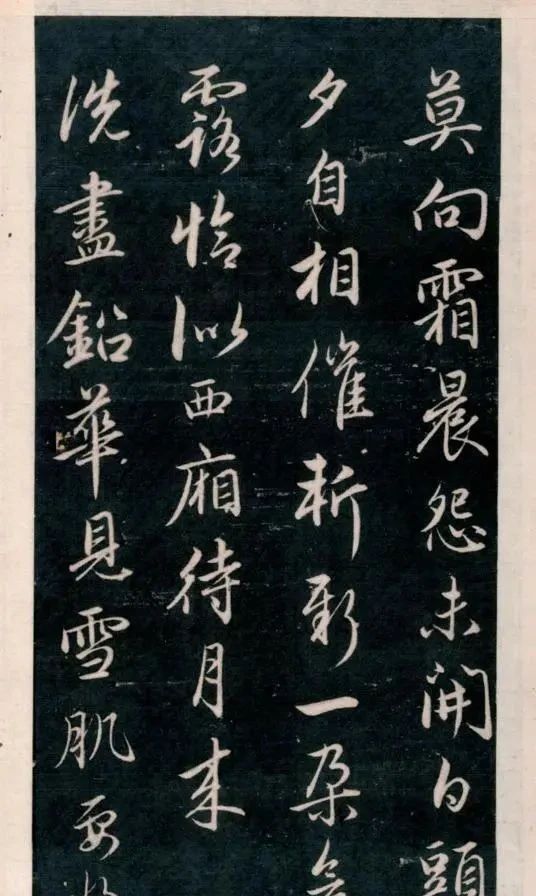 莫向霜晨怨未開白頭
夕自相催斬新一朵含
露恰似西廂待月来
洗盡鉛華見雪肌要